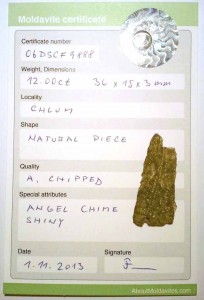 Moldavite certificate
Certificate number
06DSCF9888
Weight, Dimensions
12.00ct 36 x 15 x 3 mm
Locality
CHLUM
Shape
NATURAL PIECE
Quality
A, CHIPPED
Special attributes
ANGEL CHIME
SHINY
Date
Signature
1.11.2013
AboutMoldavites.com